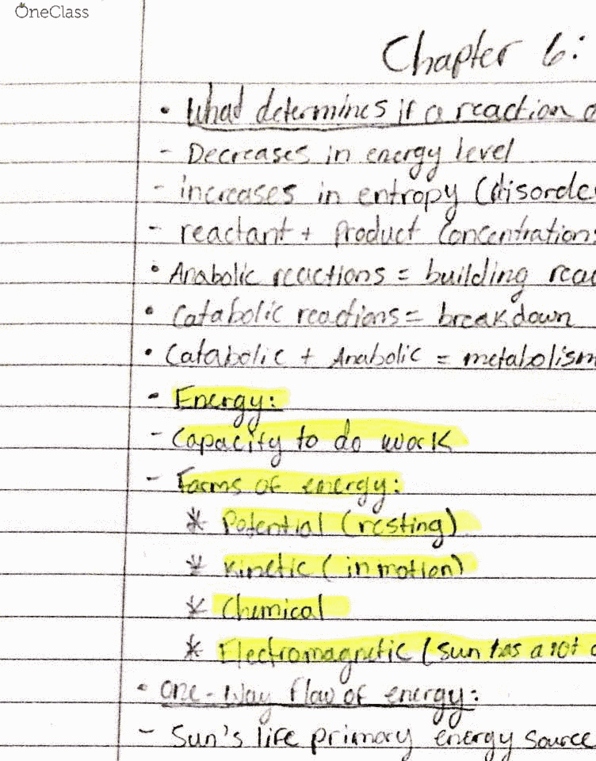 OneClass
Chapter 6:
• What determines if a reaction
- Decreases in energy level
- increases in entropy (disorde
- reactant + Product Concentrations
• Anabolic reactions = building reac
• Catabolic reactions = breakdown
• Catabolic + Anabolic = metabolism
• Energy:
- Capacity to do work
- Forms of energy:
* Potential (resting)
* Kinetic (in motion)
* Chemical
* Electromagnetic (sun has a lot
• One-Way flow of energy:
- Sun's life primary energy source